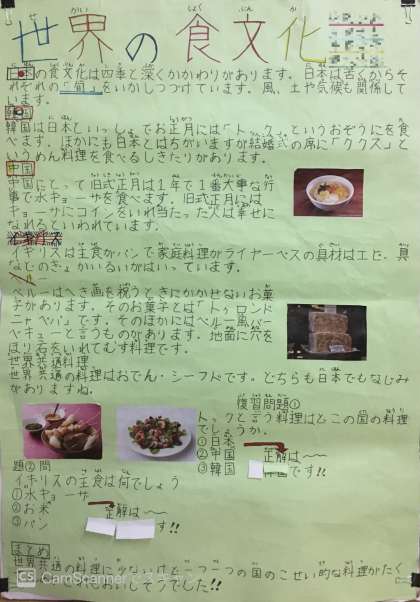 世界の食文化
日本の食文化は四季と深くかかわりがあります。日本は古くからそ
れぞれの「旬」をいかしつづけています。風、土や気候も関係して
います。
韓国
韓国は日本といっしょでお正月には「トック」というおぞうにを食
べます。ほかにも日本とはちがいますが結婚式の席に「ククス」と
いうめん料理を食べるしきたりがあります。
中国
中国にとって旧式正月は1年で1番大事な行
事で水ギョーザを食べます。旧式正月には
ギョーザにコインをいれ当たった人は幸せに
なれるといわれています。
イギリスは主食がパンで家庭料理が
の具材はエビ、貝
などのぎょかいるいがはいっています。
ペルーは
を祝うときにかかせないお菓
子があります。そのお菓子とは「
です。そのほかにはペルー風バー
ベキューと言うものがあります。地面に穴を
ほり石をいれてむす料理です。
世界共通料理
世界共通の料理はおでん・シーフドです。どちらも日本でもなじみ
がありますね。
復習問題①
トックと言う料理はどこの国の料理
でしょうか。
①日本
②中国 正解は〜
③韓国 韓国です!!
題②問
イギリスの主食は何でしょう
①水ギョーザ
②お米 正解は〜
③パン す!!
まとめ
世界共通の料理は少ないけど一つ一つの国のこせい的な料理がたく
おいしそうでした!!
CS CamScanner でスキャン